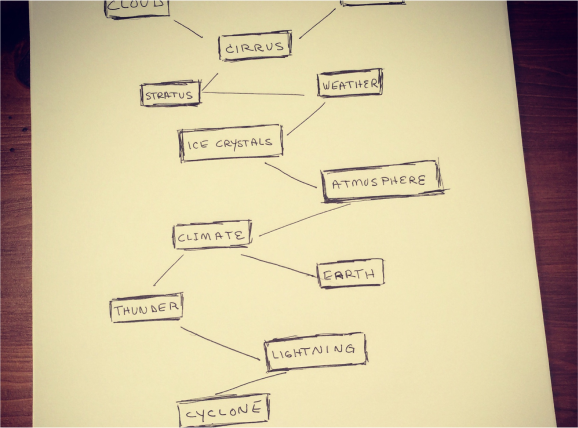 CLOUD
CIRRUS
STRATUS
WEATHER
ICE CRYSTALS
ATMOSPHERE
CLIMATE
EARTH
THUNDER
LIGHTNING
CYCLONE